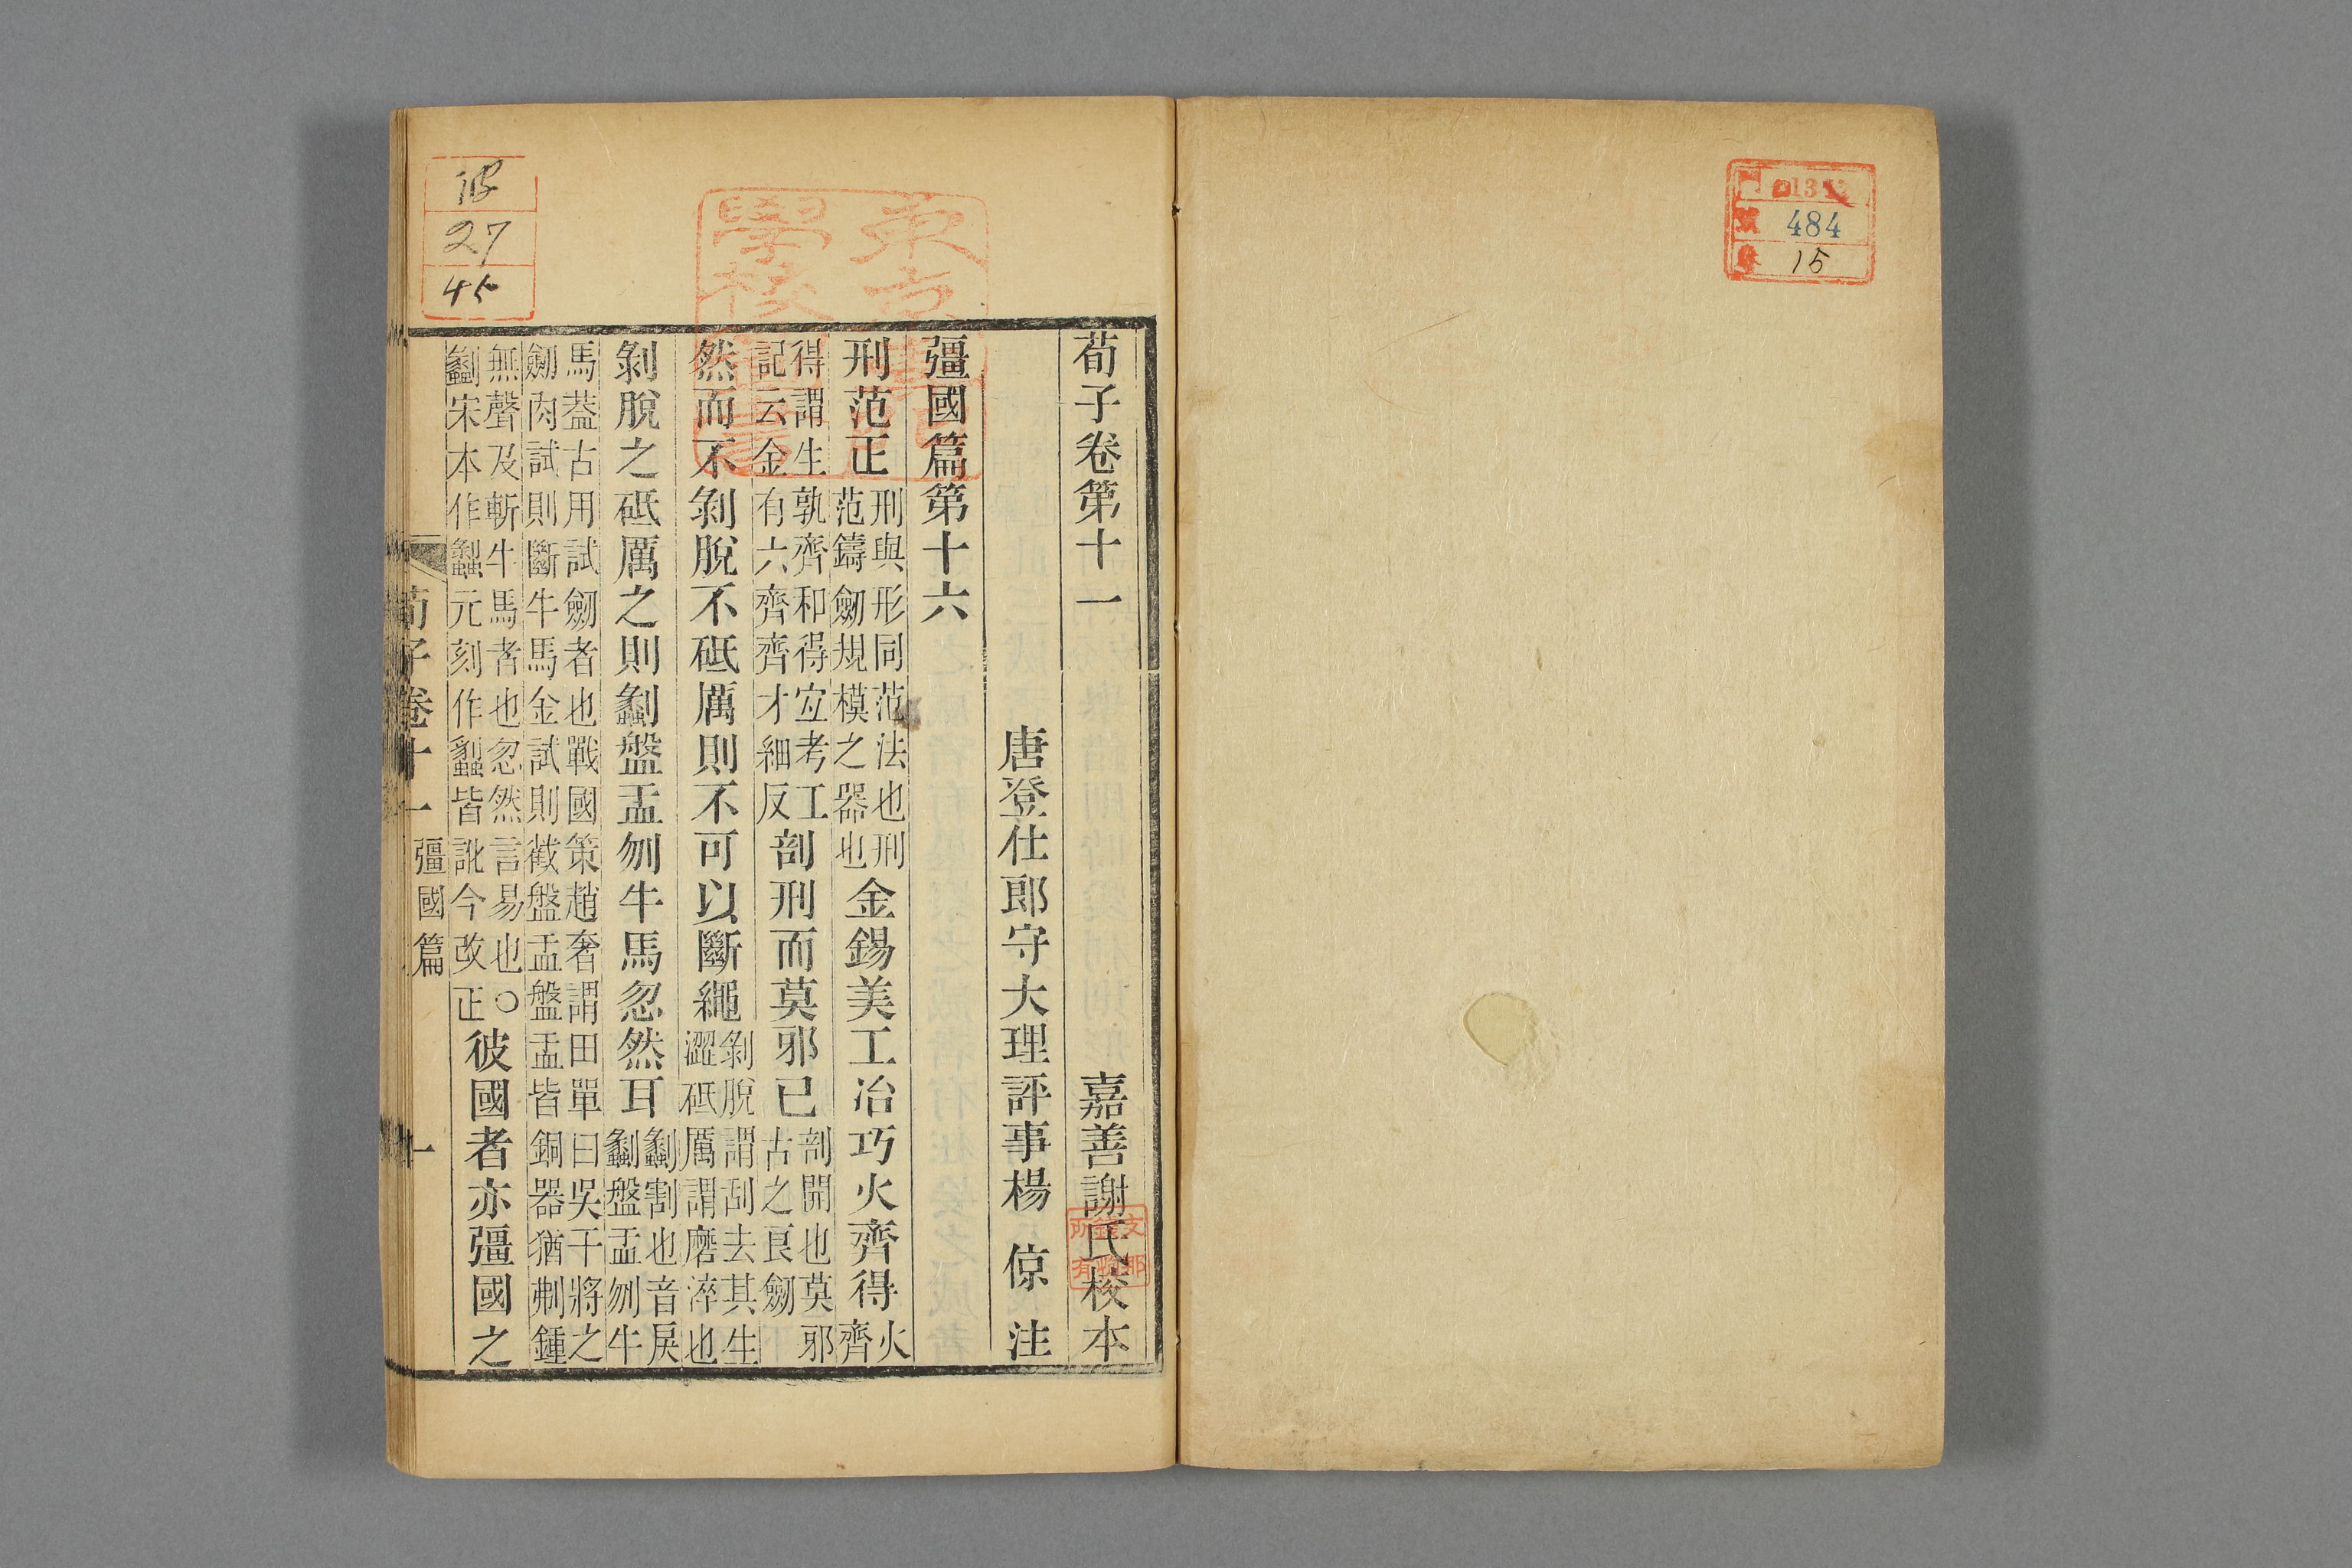 484
15
荀子卷第十一 嘉善謝氏校本
支那錢恂所有
唐登仕郎守大理評事楊 倞 注
彊國篇第十六
刑范正刑與形同范法也刑范鑄劒規模之器也金錫美工冶巧火齊得火齊
得謂生孰齊和得宐考工記云金有六齊齊才細反剖刑而莫邪已剖開也莫邪古之良劒
然而不剝脫不砥厲則不可以斷繩剝脫謂刮去其生澀砥厲謂磨淬也
剝脫之砥厲之則劙盤盂刎牛馬忽然耳劙割也音戾劙盤盂刎牛
馬葢古用試劒者也戰國策趙奢謂田單曰吳干將之劒肉試則斷牛馬金試則截盤盂盤盂皆銅器猶刜鍾
無聲及斬牛馬者也忽然言易也○劙宋本作元刻作皆訛今改正彼國者亦彊國之
荀子卷十一 彊國篇 一
27
45